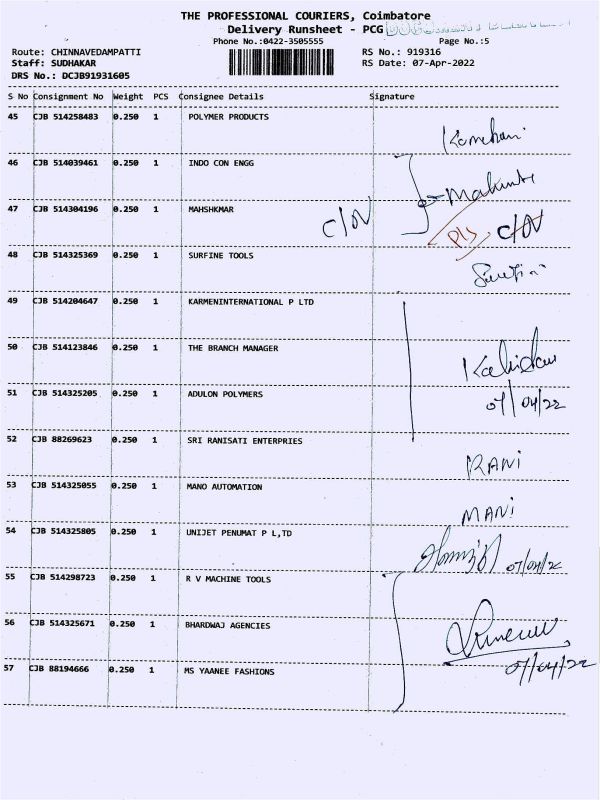 THE PROFESSIONAL COURIERS, Coimbatore
Delivery Runsheet - PCG
Phone No.:0422-3505555 Page No.:5
Route: CHINNAVEDAMPATTI RS No.: 919316
Staff: SUDHAKAR RS Date: 07-Apr-2022
DRS No.: DCJB91931605
S No Consignment No Weight PCS Consignee Details Signature
45 CJB 514258483 0.250 1 POLYMER PRODUCTS
46 CJB 514039461 0.250 1 INDO CON ENGG
47 CJB 514304196 0.250 1 MAHSHKMAR
C/N
C/N
48 CJB 514325369 0.250 1 SURFINE TOOLS
49 CJB 514204647 0.250 1 KARMENINTERNATIONAL P LTD
50 CJB 514123846 0.250 1 THE BRANCH MANAGER
51 CJB 514325205 0.250 1 ADULON POLYMERS
07/04/22
52 CJB 88269623 0.250 1 SRI RANISATI ENTERPRIES
RANI
53 CJB 514325055 0.250 1 MANO AUTOMATION
MANI
54 CJB 514325805 0.250 1 UNIJET PENUMAT P L,TD
07/04/22
55 CJB 514298723 0.250 1 R V MACHINE TOOLS
56 CJB 514325671 0.250 1 BHARDWAJ AGENCIES
07/04/22
57 CJB 88194666 0.250 1 MS YAANEE FASHIONS